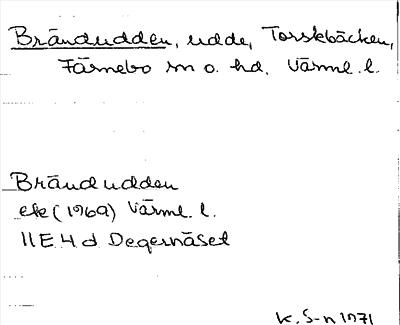 Brändudden, udde, Torskbäcken,
Färnebo sn o. hd, Värml. l.
Brändudden
ek (1969) Värml. l.
11E 4 d Degernäset
K. S-n 1971